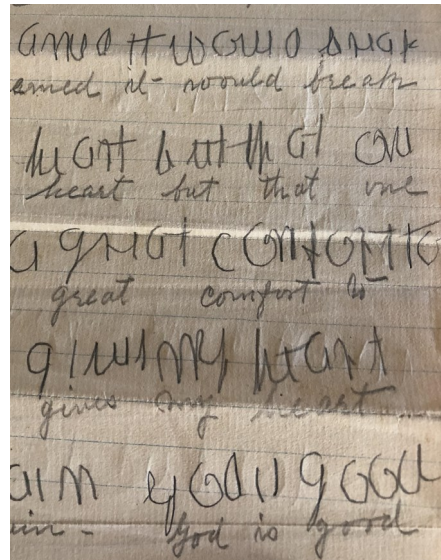 amed it would break
emed it would break
heart but that one
heart but that one
a great comfort to
great comfort to
gives my heart
gives my heart
ain God is good
ain - God is good